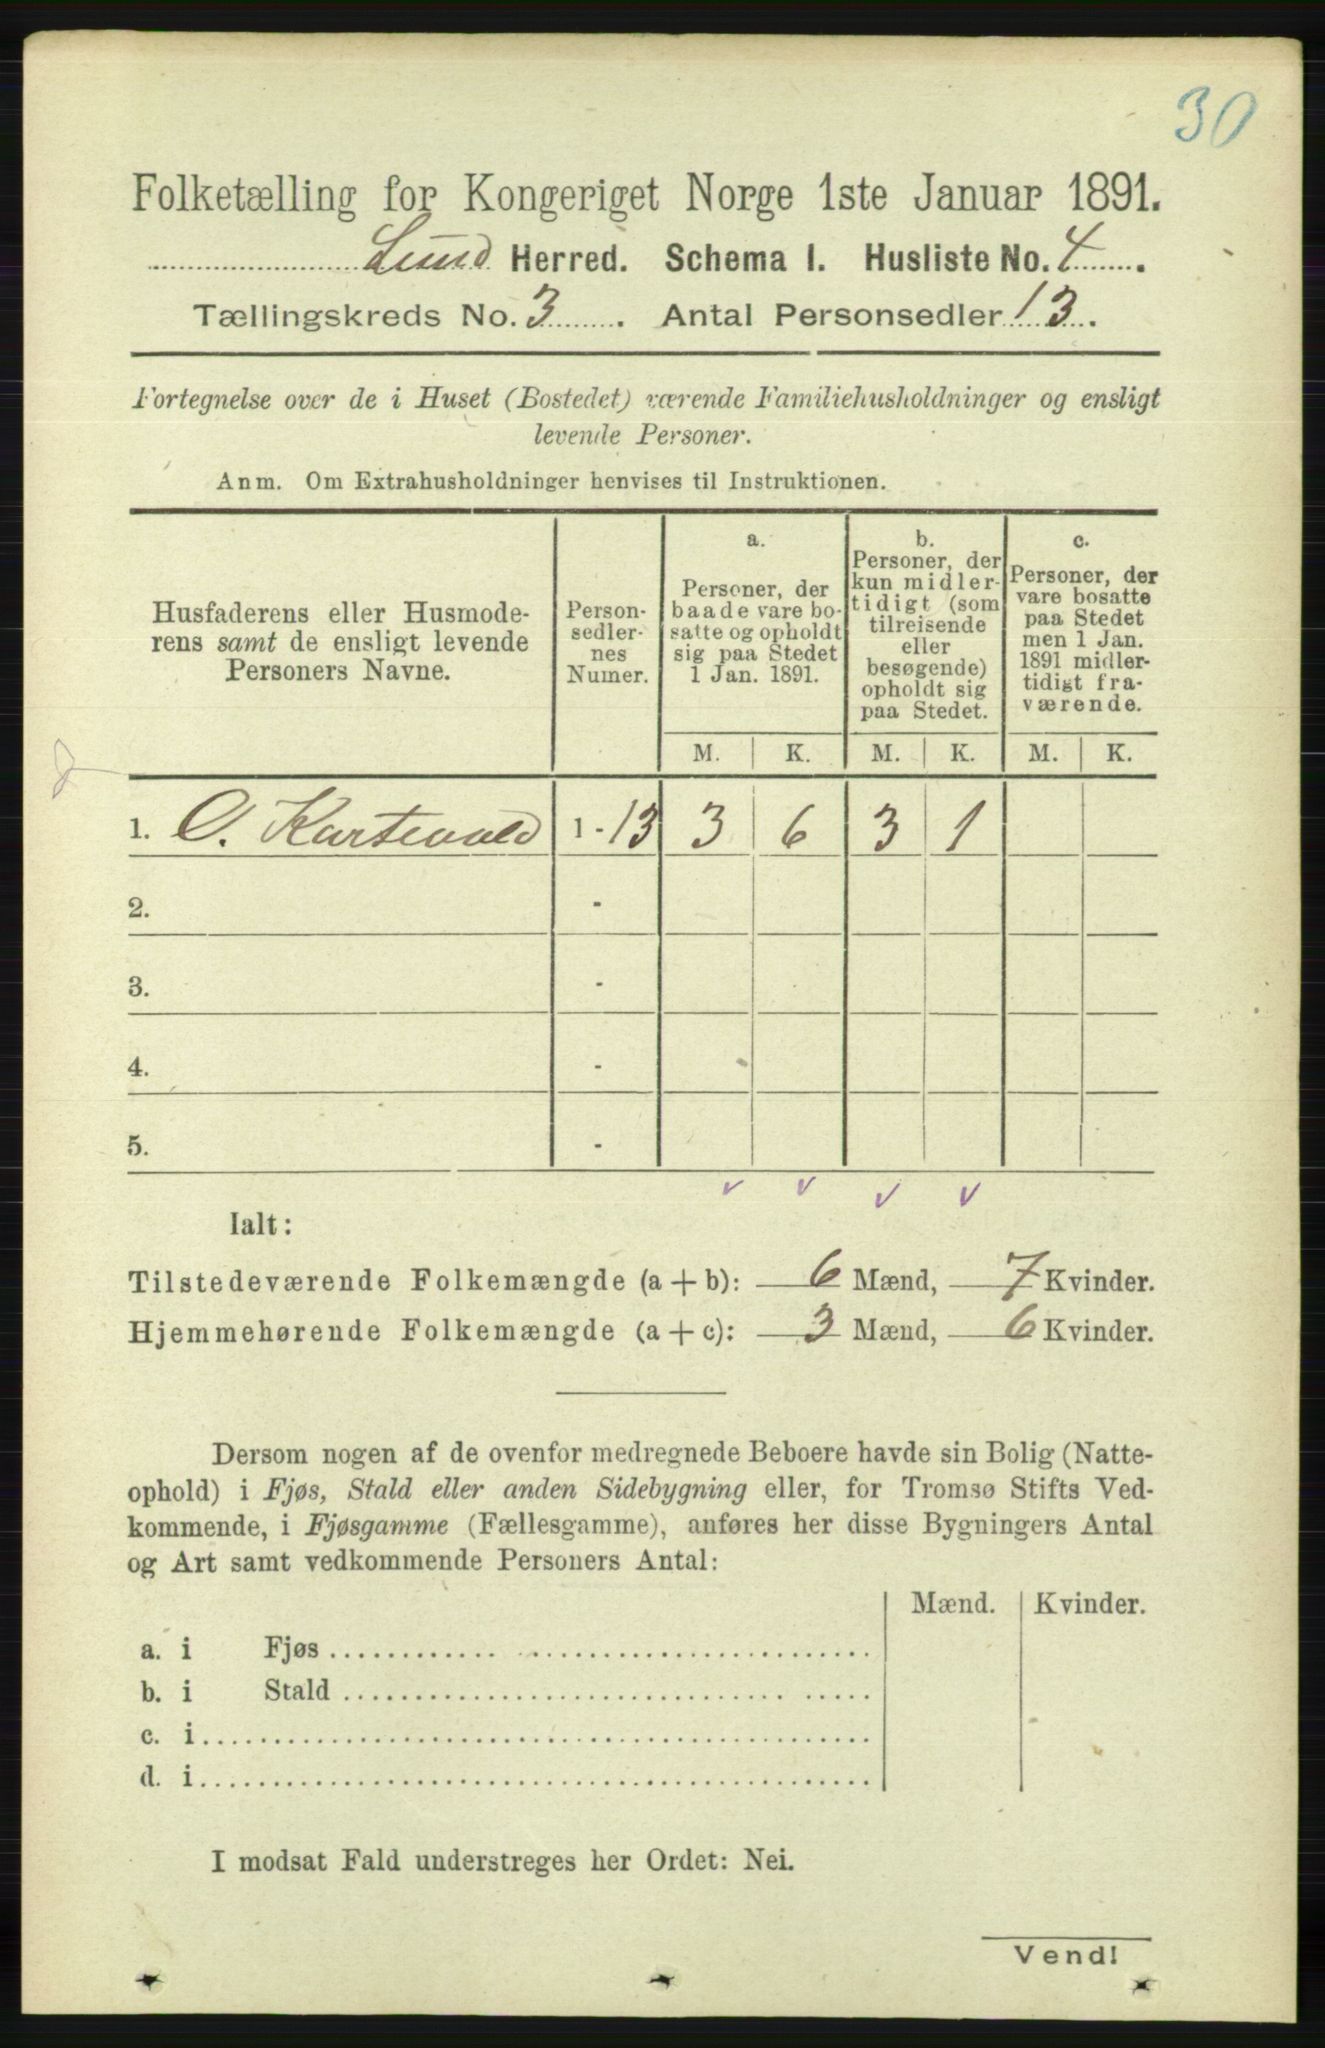 30
Folketælling for Kongeriget Norge 1ste Januar 1891.
Lund Herred. Schema I. Husliste No. 4.
Tællingskreds No. 3. Antal Personsedler 13.
Fortegnelse over de i Huset (Bostedet) værende Familiehusholdninger og ensligt
levende Personer.
Anm. Om Extrahusholdninger henvises til Instruktionen.
Husfaderens eller Husmode-
rens samt de ensligt levende
Personers Navne.
Person-
sedler-
nes
Numer.
a.
Personer, der
baade vare bo-
satte og opholdt
sig paa Stedet
1 Jan. 1891.
b.
Personer, der
kun midler-
tidigt (som
tilreisende
eller
besøgende)
opholdt sig
paa Stedet.
c.
Personer, der
vare bosatte
paa Stedet
men 1 Jan.
1891 midler-
tidigt fra-
værende.
M. K. M. K. M. K.
1. O. 1 - 13 3 6 3 1
2. -
3. -
4. -
5. -
Ialt:
Tilstedeværende Folkemængde (a + b): 6 Mænd, 7 Kvinder.
Hjemmehørende Folkemængde (a + c): 3 Mænd, 6 Kvinder.
Dersom nogen af de ovenfor medregnede Beboere havde sin Bolig (Natte-
ophold) i Fjøs, Stald eller anden Sidebygning eller, for Tromsø Stifts Ved-
kommende, i Fjøsgamme (Fællesgamme), anføres her disse Bygningers Antal
og Art samt vedkommende Personers Antal:
Mænd. Kvinder.
a. i Fjøs
b. i Stald
c. i
d. i
I modsat Fald understreges her Ordet: Nei.
Vend!